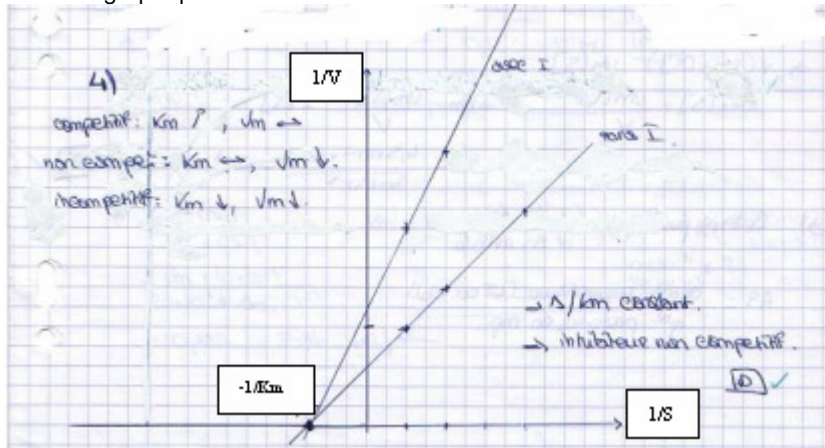 4)
1/V
avec I
competitif: Km ↑, Vm ↔
sans I
non compet: Km ↔, Vm ↓.
incompetitif: Km ↓, Vm ↓.
→ 1/Km constant.
→ inhibiteur non competitif.
D ✓
-1/Km
1/S